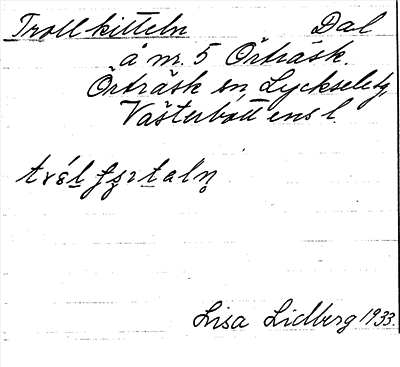 Trollkitteln Dal
å m. 5 Örträsk.
Örträsk sn, Lycksele tg,
Västerbottens l.
Lisa Lidberg 1933.